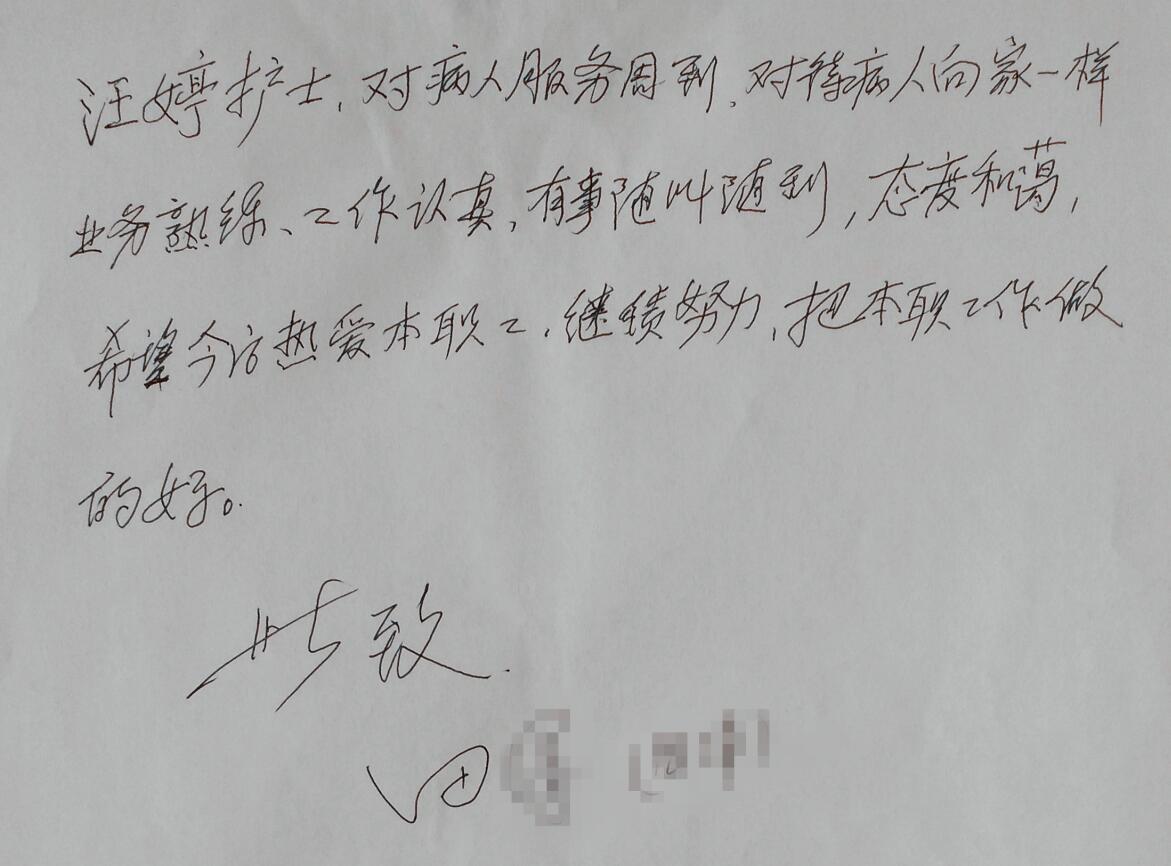 汪婷护士,对病人服务周到,对待病人向家一样
业务熟练、工作认真,有事随叫随到,态度和蔼,
希望今访热爱本职工,继续努力,把本职工作做
的好。
此致
田